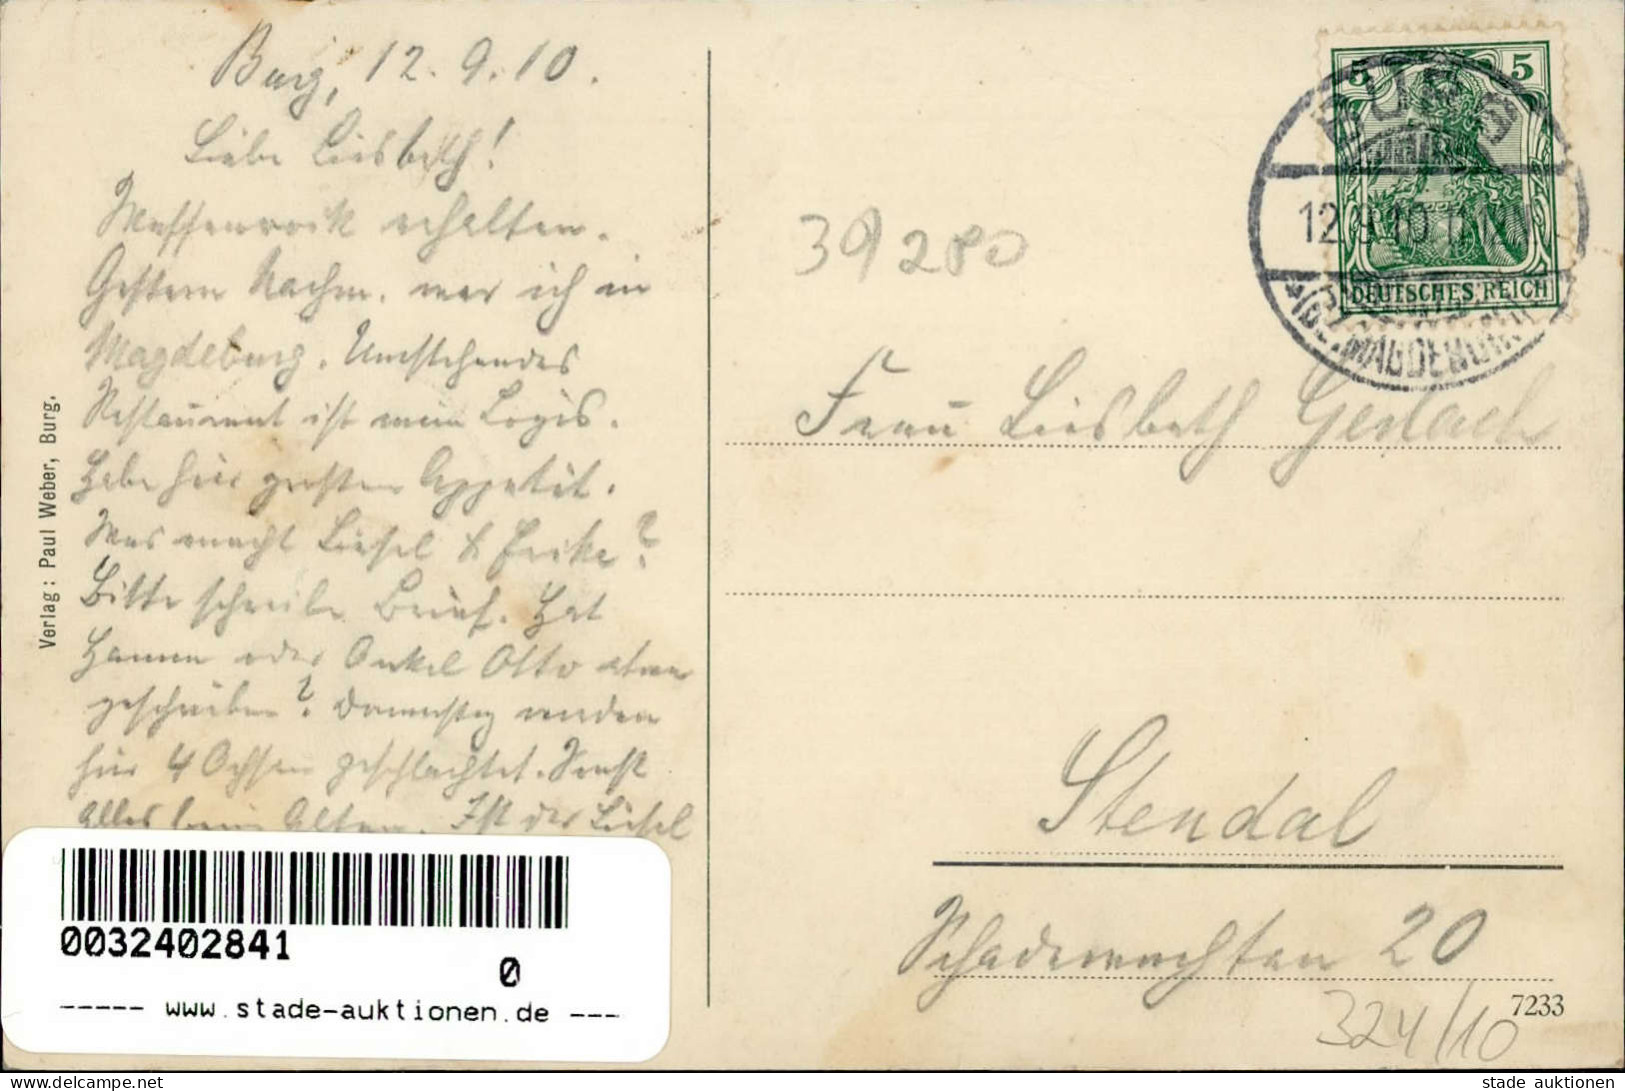 Burg, 12.9.10.
Liebe Liesbeth!
Waffenrock erhalten.
Gestern Nachm. war ich in
Magdeburg. Umstehendes
Restaurant ist mein Logis.
Habe hier großen Appetit.
Was macht Liesel &
Bitte schreibe Brief. Hat
oder Onkel Otto etwas
geschrieben? Donnerstag werden
hier 4 Ochsen geschlachtet. Sonst
alles beim Alten. Ist der Liesel
Verlag: Paul Weber, Burg.
39280
5 5
DEUTSCHES REICH
BURG
12.9.10
(BZ. MAGDEBURG)
Frau Liesbeth Gerlach
Stendal
Schadewachten 20
7233
324/10
0032402841
0
----- www.stade-auktionen.de ---
www.delcampe.net
stade auktionen